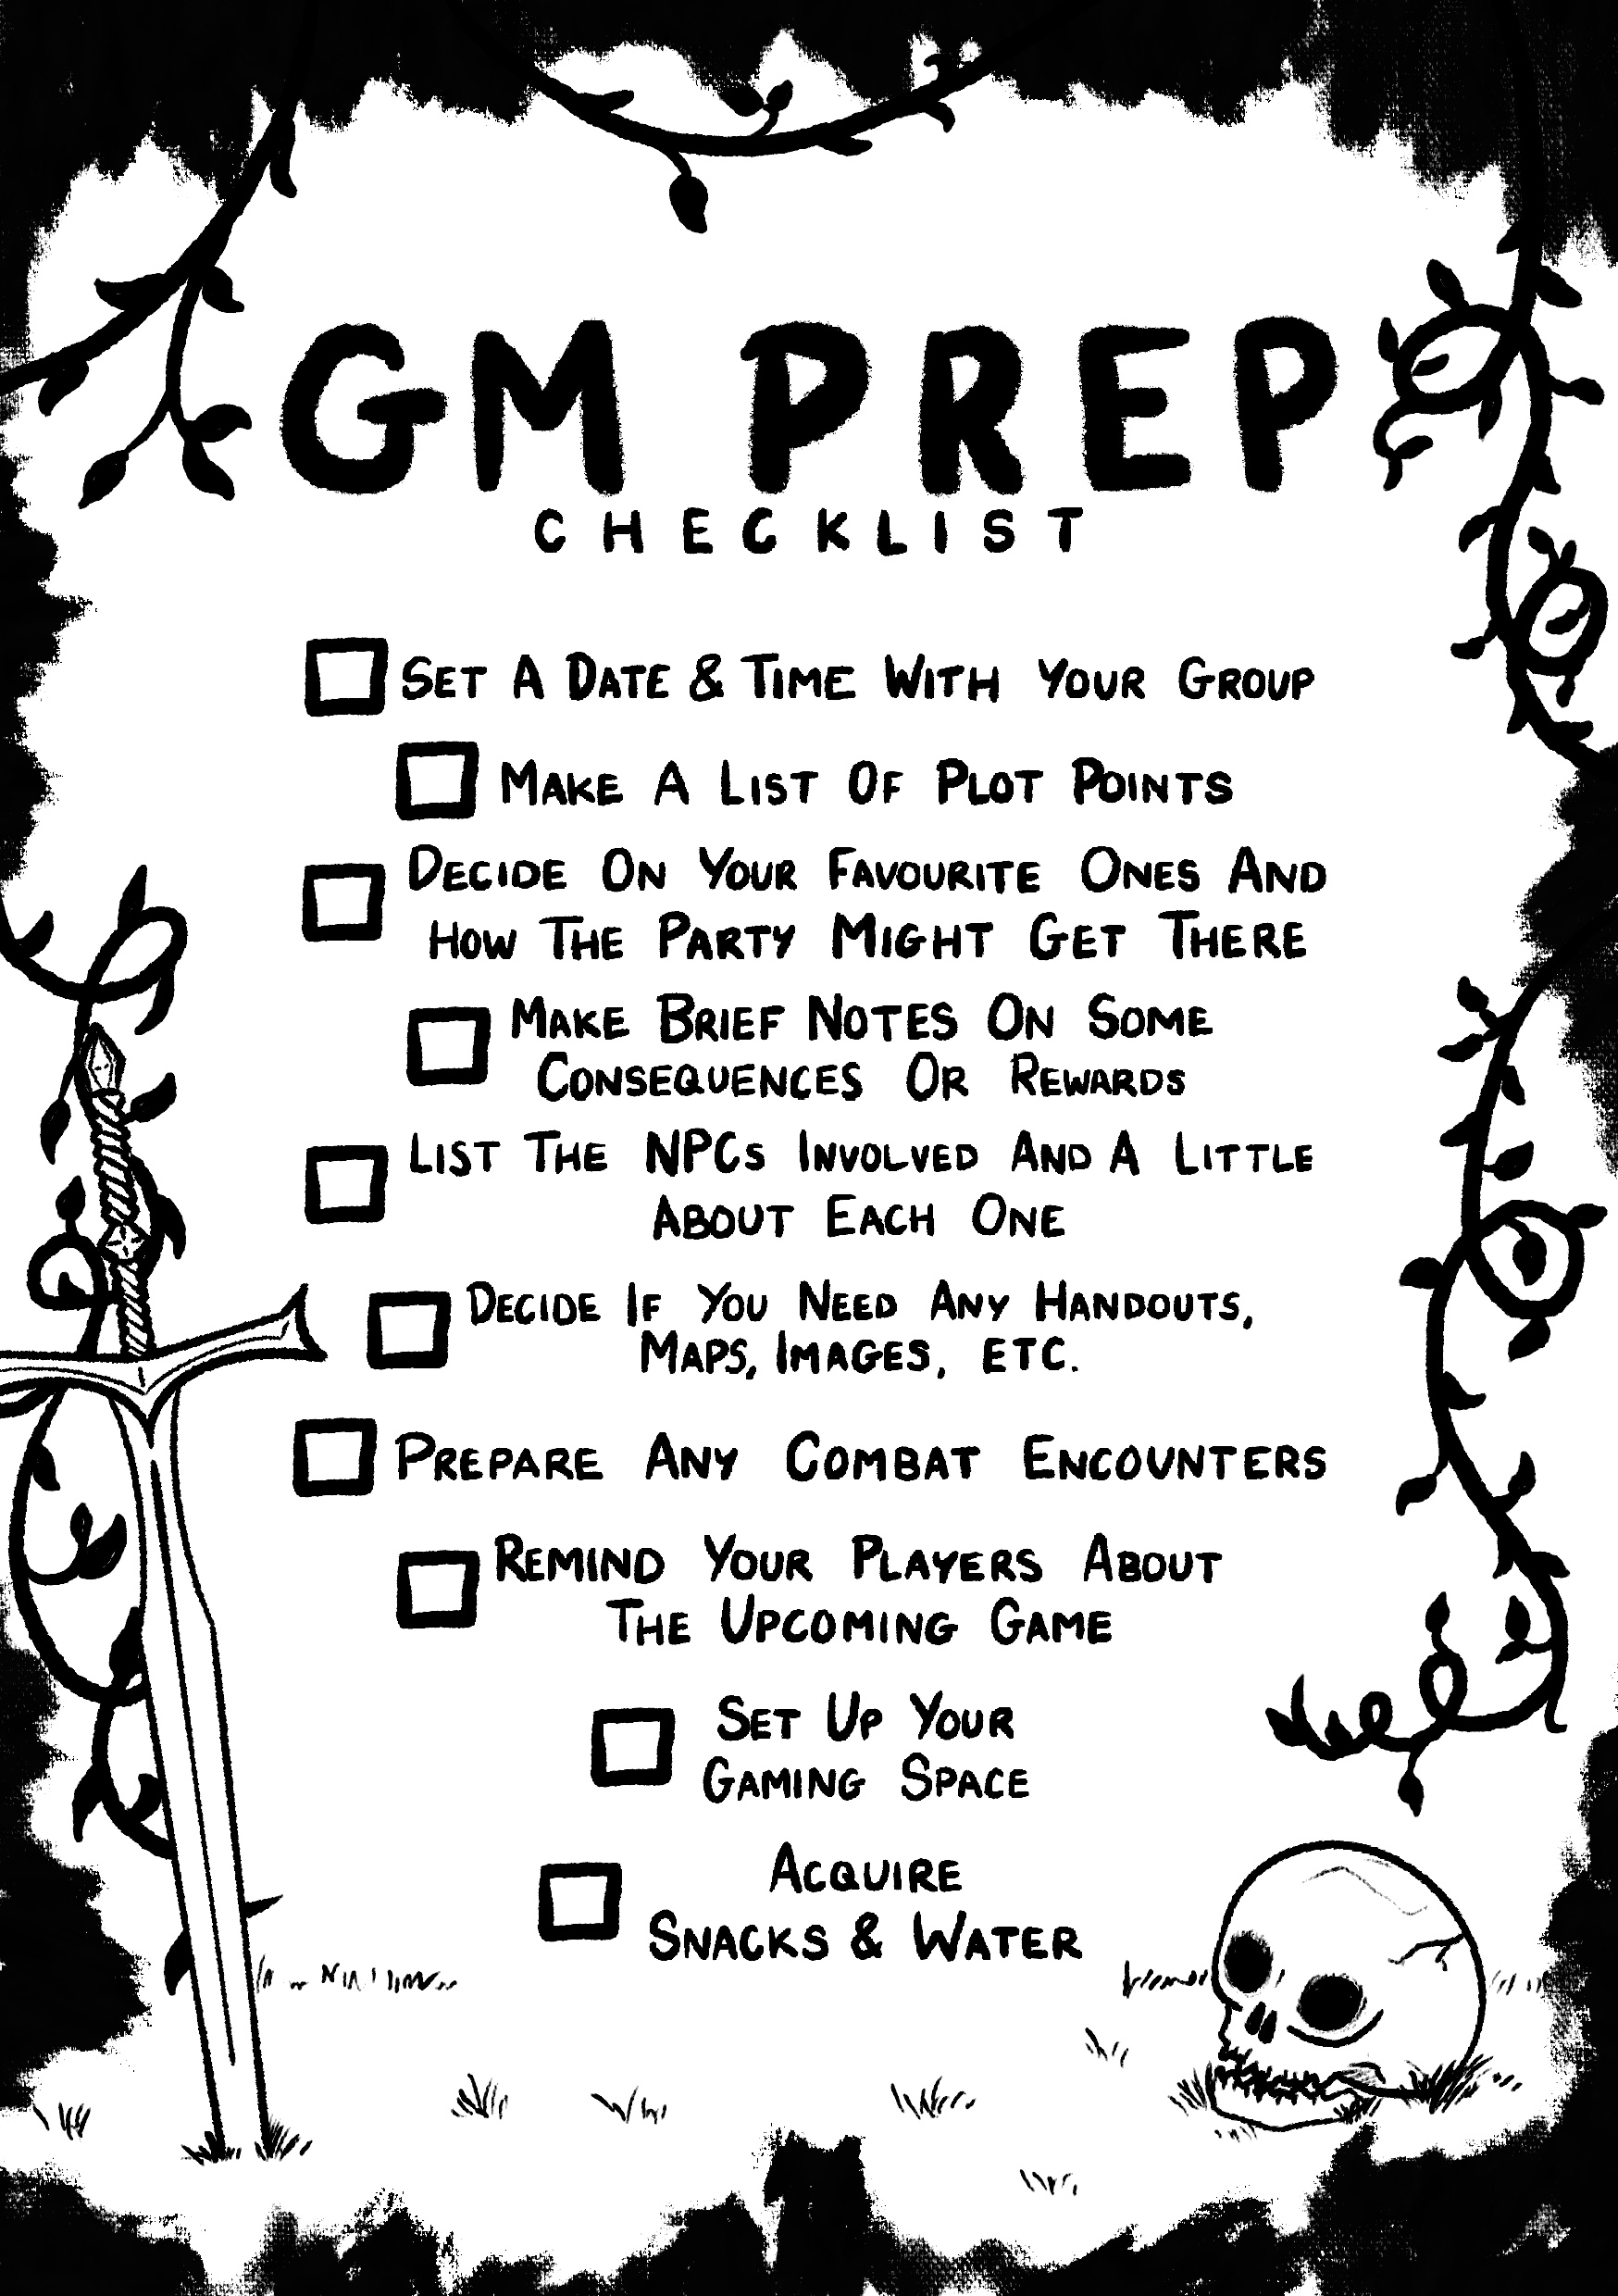 GM PREP
CHECKLIST
SET A DATE & TIME WITH YOUR GROUP
MAKE A LIST OF PLOT POINTS
DECIDE ON YOUR FAVOURITE ONES AND
HOW THE PARTY MIGHT GET THERE
MAKE BRIEF NOTES ON SOME
CONSEQUENCES OR REWARDS
LIST THE NPCS INVOLVED AND A LITTLE
ABOUT EACH ONE
DECIDE IF YOU NEED ANY HANDOUTS,
MAPS, IMAGES, ETC.
PREPARE ANY COMBAT ENCOUNTERS
REMIND YOUR PLAYERS ABOUT
THE UPCOMING GAME
SET UP YOUR
GAMING SPACE
ACQUIRE
SNACKS & WATER